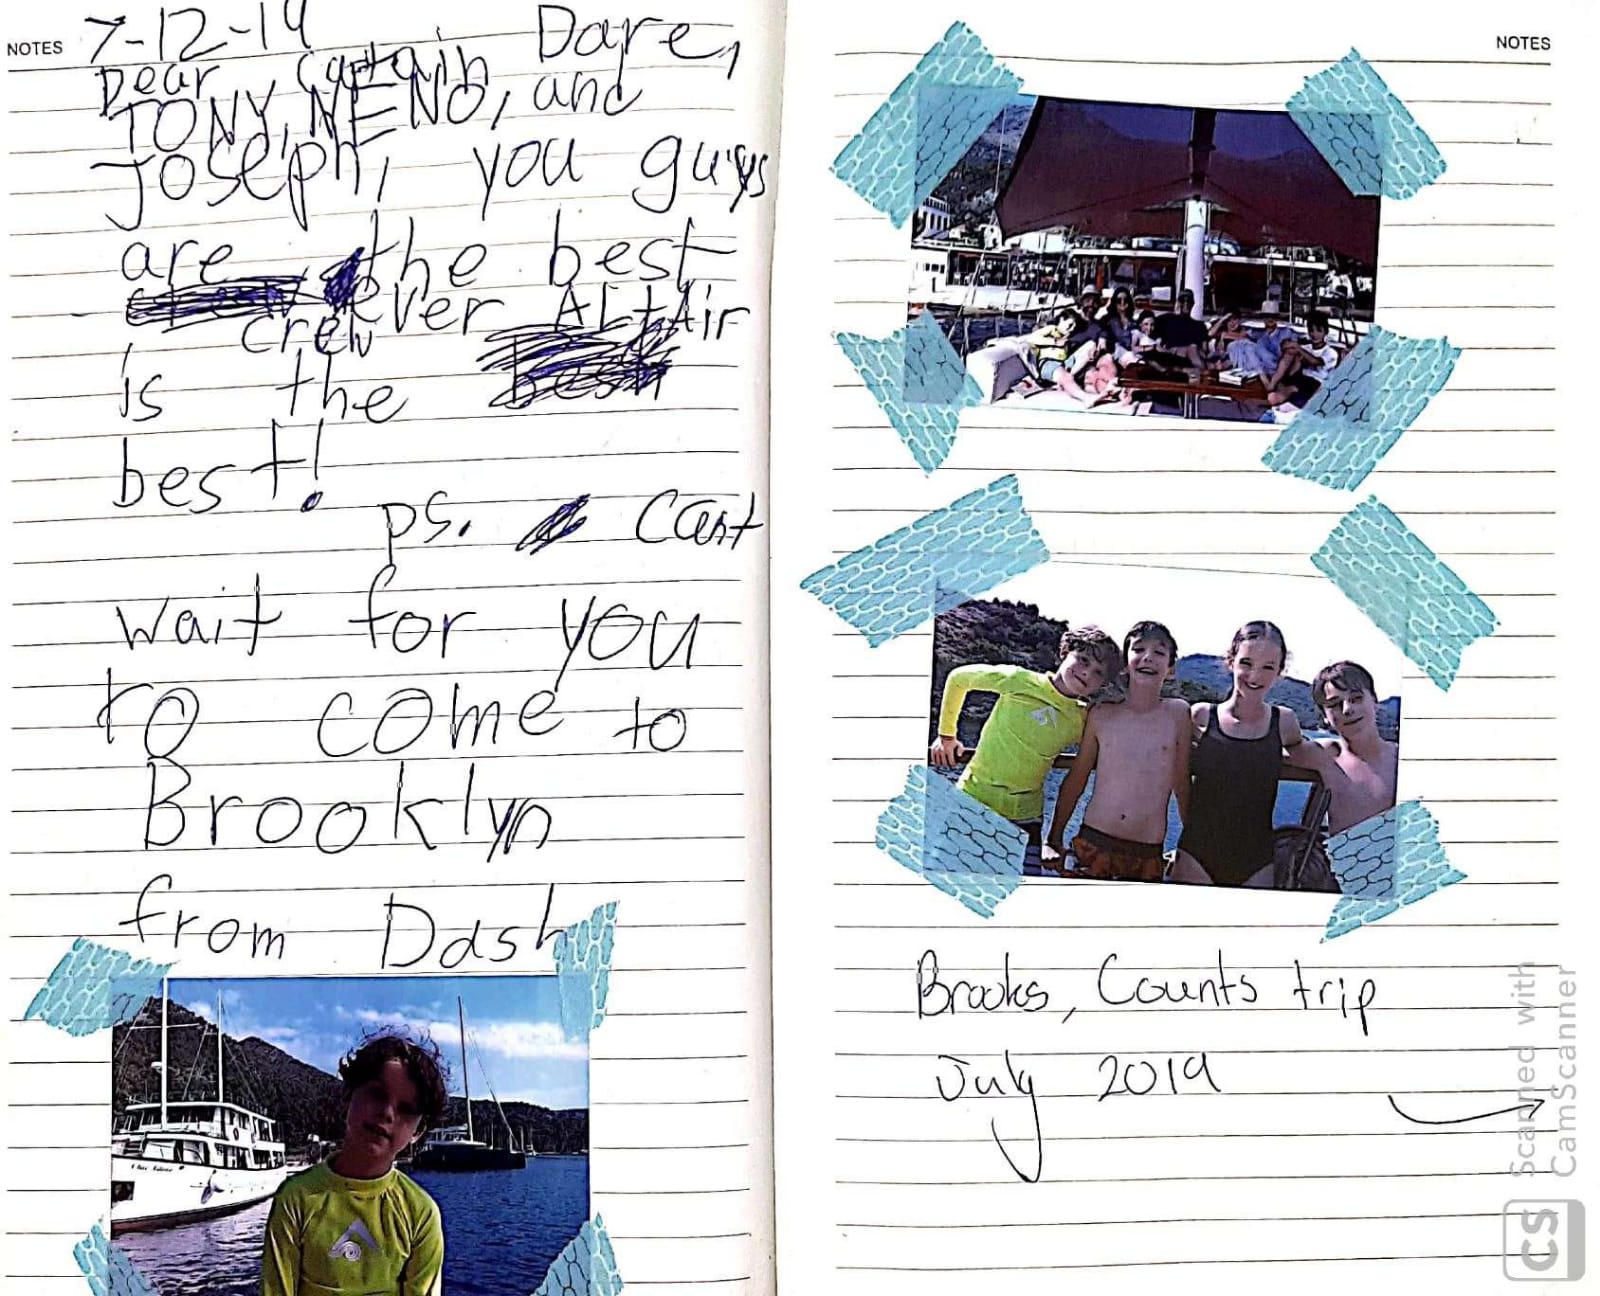 NOTES
7-12-19
Dear, Captain Dare,
TONY, NENO, and
Joseph, you guys
are the best
crew ever AltAir
is the
best!
ps. Cant
wait for you
to come to
Brooklyn
from Dash
NOTES
Brooks, Counts trip
July 2019
Scanned with
CamScanner
CS